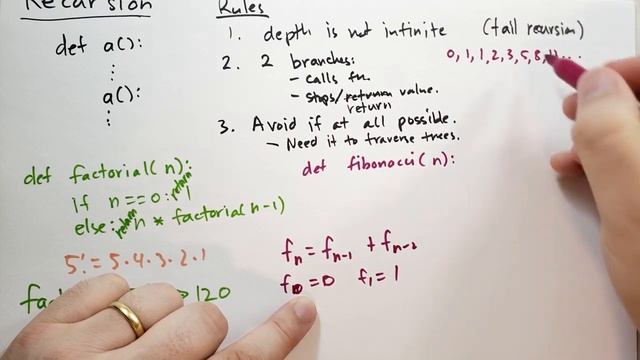 Recursion
def a():
:
a():
:
Rules
1. depth is not infinite (tall recursion)
2. 2 branches:
- calls fn.
- stops/return value.
return
3. Avoid if at all possible.
- Need it to traverse trees.
0, 1, 1, 2, 3, 5, 8,
def factorial(n):
if n==0: return 1
else: return n * factorial(n-1)
5! = 5·4·3·2·1
120
def fibonacci(n):
fn = fn-1 + fn-2
f0 = 0 f1 = 1